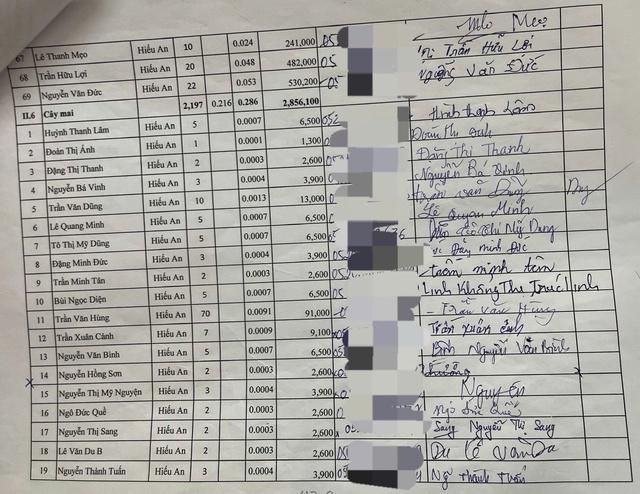 Mẹo
67 Lê Thanh Mẹo Hiếu An 10 0.024 241,000 05
68 Trần Hữu Lợi Hiếu An 20 0.048 482,000 Trần Hữu Lợi
69 Nguyễn Văn Đức Hiếu An 22 0.053 530,200 05 Nguyễn Văn Đức
II.6 Cây mai 2,197 0.216 0.286 2,856,100
1 Huỳnh Thanh Lâm Hiếu An 5 0.0007 6,500 052 Huỳnh Thanh Lâm
2 Đoàn Thị Ánh Hiếu An 1 0.0001 1,300 Đoàn Thị Ánh
3 Đặng Thị Thanh Hiếu An 2 0.0003 2,600 Đặng Thị Thanh
4 Nguyễn Bá Vinh Hiếu An 3 0.0004 3,900 Nguyễn Bá Vinh
5 Trần Văn Dũng Hiếu An 10 0.0013 13,000 Trần Văn Dũng Dũng
6 Lê Quang Minh Hiếu An 5 0.0007 6,500 Lê Quang Minh
7 Tô Thị Mỹ Dũng Hiếu An 5 0.0007 6,500 Thị Mỹ Dung
8 Đặng Minh Đức Hiếu An 3 0.0004 3,900 Đặng Minh Đức
9 Trần Minh Tân Hiếu An 2 0.0003 2,600 Minh Tân
10 Bùi Ngọc Diện Hiếu An 5 0.0007 6,500 Linh Khổng Thị Trúc Linh
11 Trần Văn Hùng Hiếu An 70 0.0091 91,000 Trần Văn Hùng
12 Trần Xuân Cảnh Hiếu An 7 0.0009 9,100 Trần Xuân Cảnh
13 Nguyễn Văn Bình Hiếu An 5 0.0007 6,500 Bình Nguyễn Văn Bình
x 14 Nguyễn Hồng Sơn Hiếu An 2 0.0003 2,600 x
15 Nguyễn Thị Mỹ Nguyện Hiếu An 3 0.0004 3,900
16 Ngô Đức Quề Hiếu An 2 0.0003 2,600
17 Nguyễn Thị Sang Hiếu An 2 0.0003 2,600 Sang Nguyễn Thị Sang
18 Lê Văn Du B Hiếu An 2 0.0003 2,600 Du Lê Văn Du
19 Nguyễn Thành Tuấn Hiếu An 3 0.0004 3,900 05 Thành Tuấn